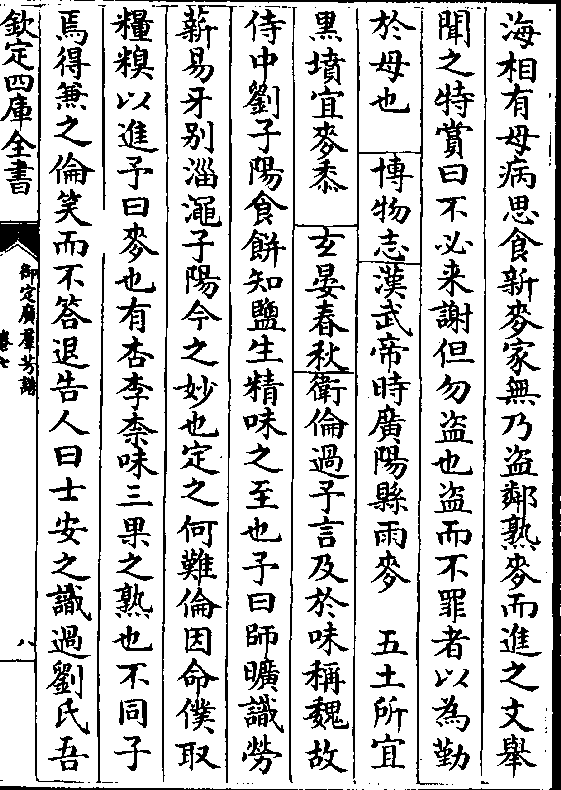 海相有母病思食新麥家無乃盗鄰熟麥而進之文舉
聞之特賞曰不必来謝但勿盗也盗而不罪者以為勤
於母也　博物志漢武帝時廣陽縣雨麥　五土所宜
黒墳宜麥黍　玄晏春秋衛倫過予言及於味稱魏故
侍中劉子陽食餅知鹽生精味之至也予曰師曠識勞
薪易牙别淄澠子陽今之妙也定之何難倫因命僕取
糧糗以進予曰麥也有杏李柰味三果之熟也不同子
焉得兼之倫笑而不答退告人曰士安之識過劉氏吾
欽定四庫全書
御定廣羣芳譜
卷七
八